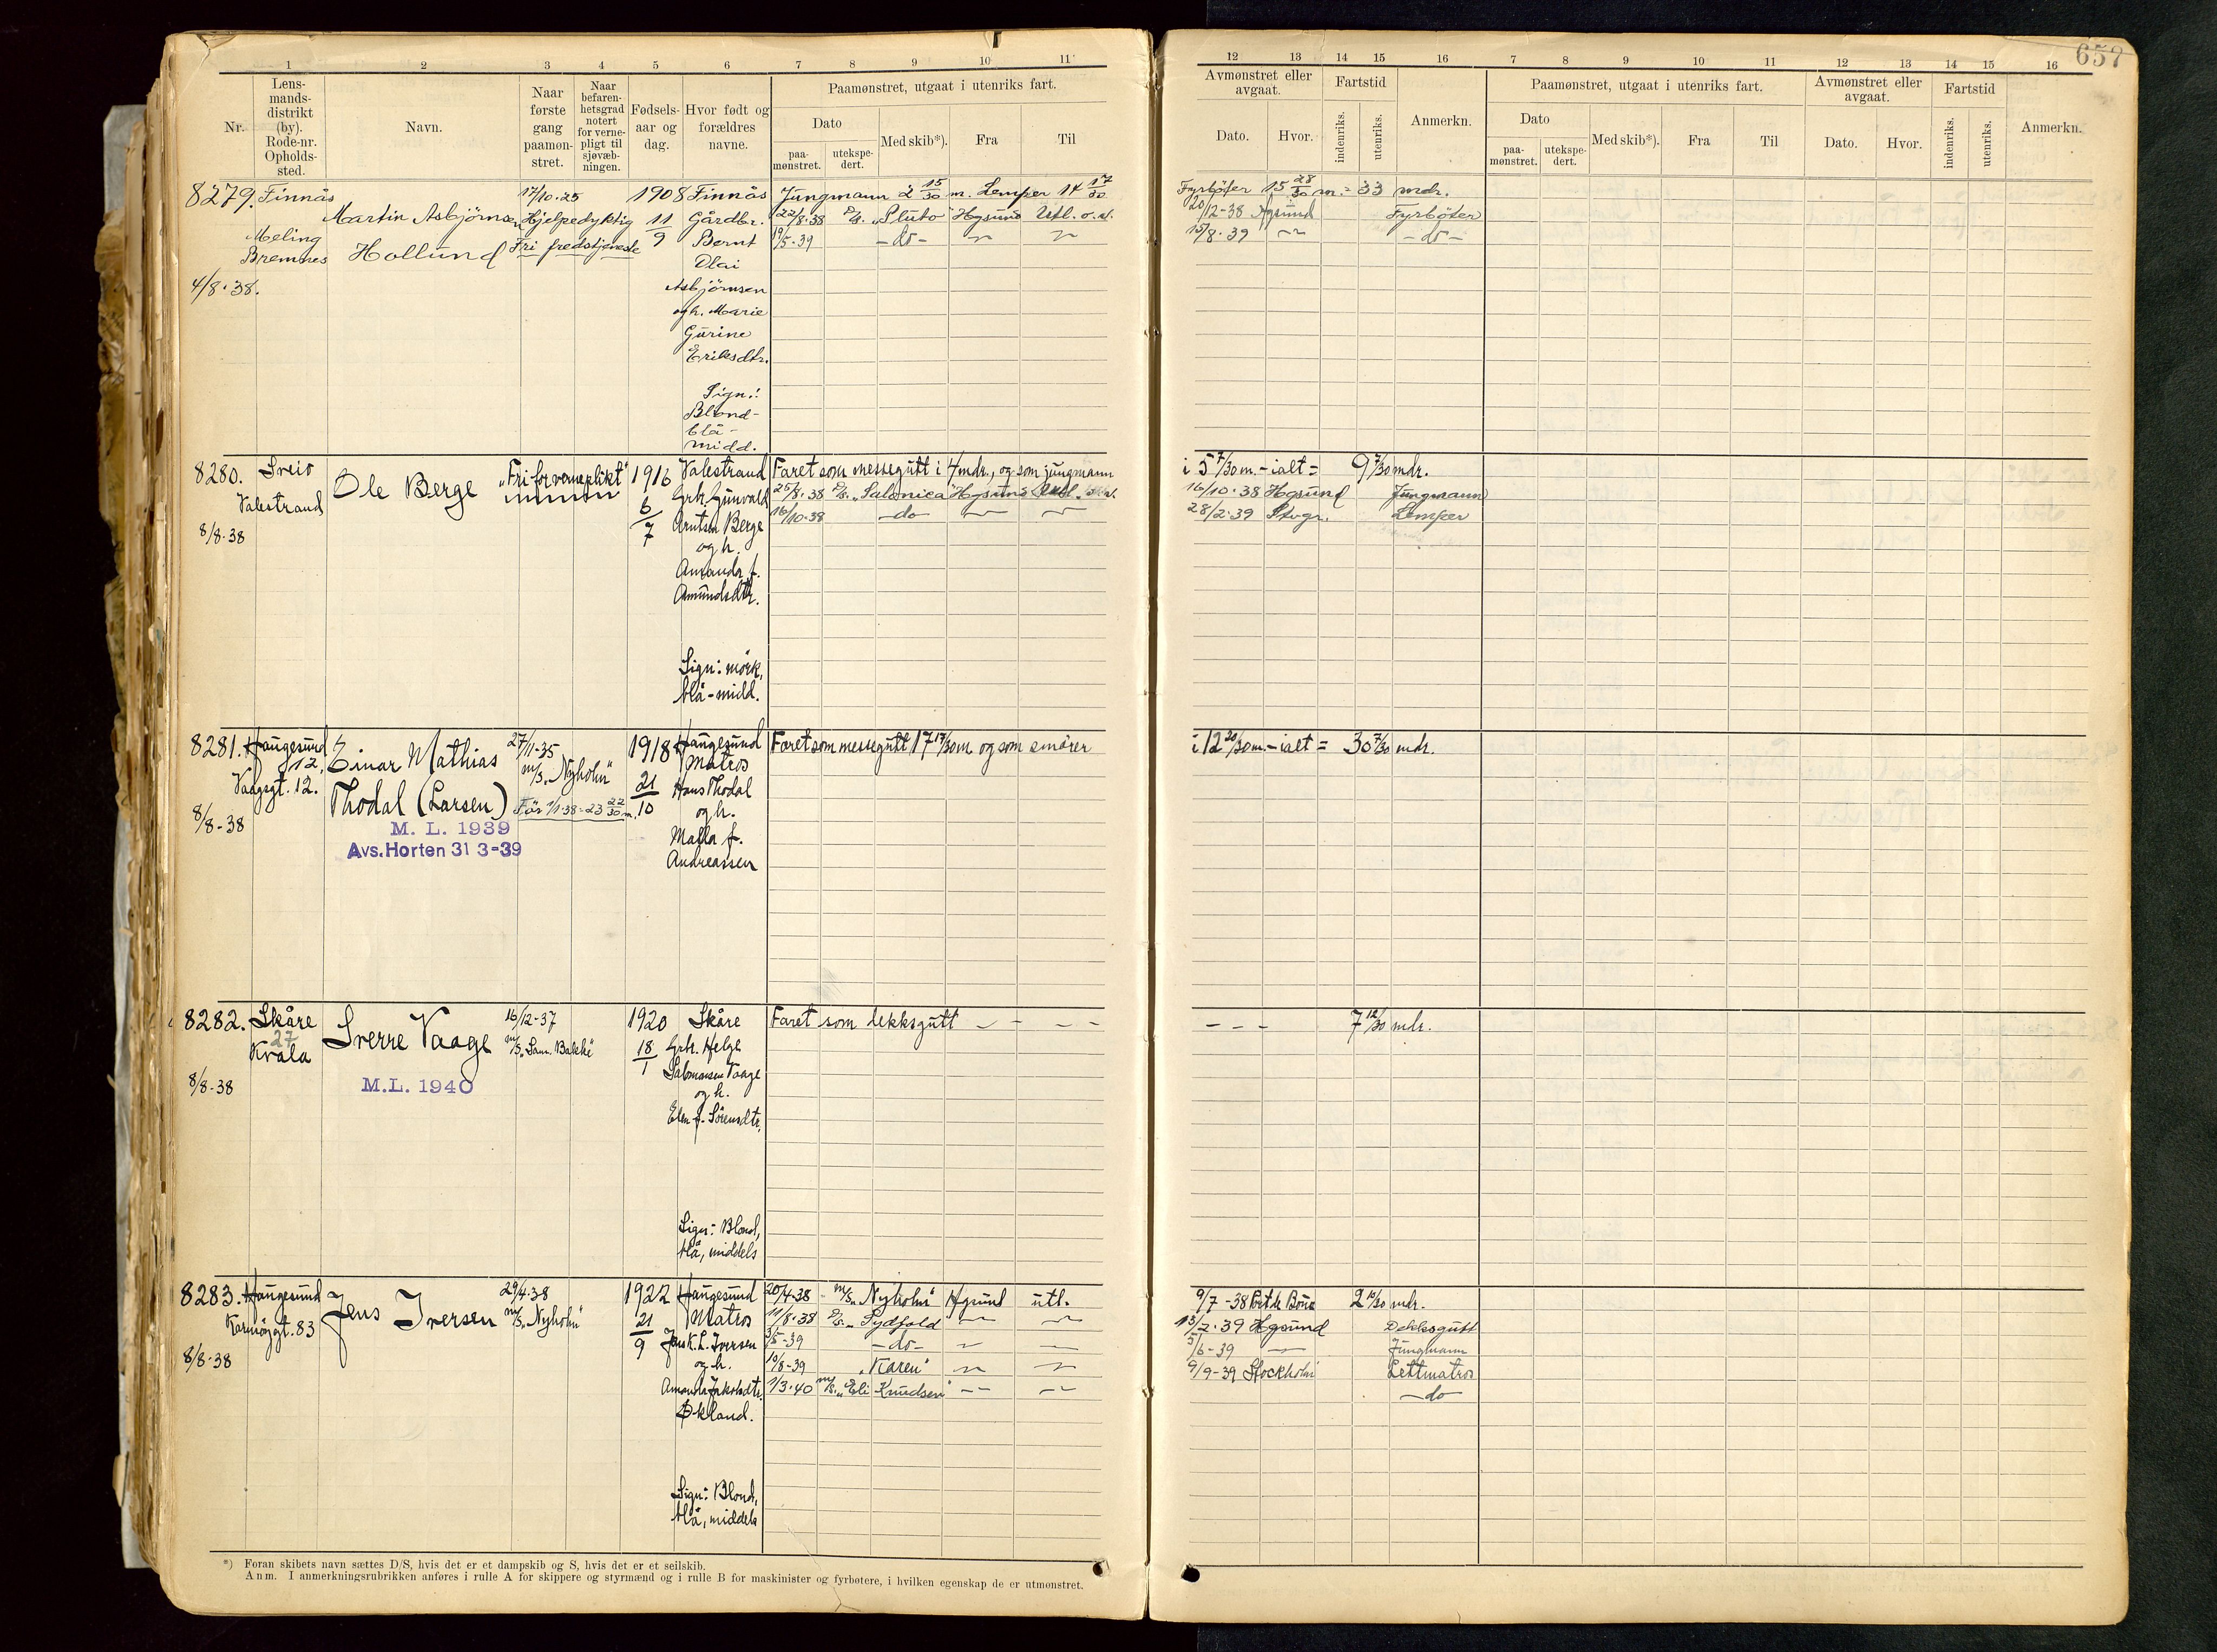 657
1 2 3 4 5 6 7 8 9 10 11
Nr.
Lens-
mands-
distrikt
(by).
Rode-nr.
Opholds-
sted.
Navn.
Naar
første
gang
paamøn-
stret.
Naar
befaren-
hetsgrad
notert
for verne-
pligt til
sjøvæb-
ningen.
Fødsels-
aar og
dag.
Hvor født og
forældres
navne.
Paamønstret, utgaat i utenriks fart.
Dato
paa-
mønstret.
utekspe-
dert.
Med skib*).
Fra
Til
12 13 14 15 16 7 8 9 10 11 12 13 14 15 16
Avmønstret eller
avgaat.
Dato.
Hvor.
Fartstid
indenriks.
utenriks.
Anmerkn.
Paamønstret, utgaat i utenriks fart.
Dato
paa-
mønstret.
utekspe-
dert.
Med skib*).
Fra
Til
Avmønstret eller
avgaat.
Dato.
Hvor.
Fartstid
indenriks.
utenriks.
Anmerkn.
8279. Finnås
Meling
Bremnes
4/8.38.
Martin Asbjørnsen
Hollund
17/10.25
Hjelpedyktig
Fri fredstjeneste
1908
11
9
Finnås
Gårdbr.
Bernt
Olai
Asbjörnsen
og h. Marie
Gurine
Eriksdtr.
Sign.:
Blond-
blå-
midd.
Jungmann 2 15/30 m. Lemper 14 17/30
22/8.38 D/S. „Pluto" Hgsund Utl. o.s.
19/5.39 -do- -"- -"-
Fyrböter 15 28/30 m. = 33 mdr.
20/12-38 Hgsund Fyrböter
15/8.39 -"- -do-
8280. Sveio
Valestrand
8/8-38
Ole Berge
„Fri for verneplikt"
1916
6
7
Valestrand
Grbr. Gunvald
Arntsen Berge
og h.
Amanda f.
Amundsdtr.
Sign: mörk,
blå-midd.
Faret som messegutt i 4 mdr., og som jungmann
25/8.38 D/S. „Salonica" Hgsund Utl.
16/10.38 -do- -"- -"-
i 5 7/30 m. - ialt = 9 7/30 mdr.
16/10.38 Hgsund Jungmann
28/2.39 Stvgr. Lemper
8281. Haugesund
12.
Vaagsgt. 12.
8/8-38
Einar Mathias
Thodal (Larsen)
M. L. 1939
Avs. Horten 31 3-39
27/11-35
m/s. „Nyholm"
För 1/1.38 = 23 22/30 m.
1918
21
10
Haugesund
Matros
Hans Thodal
og h.
Malla f.
Andreassen
Faret som messegutt 17 17/30 m. og som smörer
i 12 20/30 m. - ialt = 30 7/30 mdr.
8282. Skåre
27
Kvala
8/8-38
Sverre Vaage
M.L. 1940
16/12-37
m/s. „Sam. Bakke"
1920
18
1
Skåre
Grbr. Helge
Salomonsen Vaage
og h.
Elen f. Sörensdtr.
Sign: Blond,
blå, middels
Faret som dekksgutt - - - -
- - - 7 12/30 mdr.
8283. Haugesund
Karmöygt. 83
8/8-38
Jens Iversen
29/4-38
m/s. „Nyholm"
1922
21
9
Haugesund
Matros
Jens K. L. Iversen
og h.
Amanda Jakobsdtr.
Økland.
Sign: Blond,
blå, middels
20/4-38 - m/s. „Nyholm" Hgsund utl.
11/8.38 D/S. „Sydfold -"- -"-
3/5-39 -do- -"- -"-
10/8-39 „Karen" -"- -"-
1/3.40 m/s. „Eli Knudsen" -"- -"-
9/7-38 Port de Bouc 2 10/30 mdr.
13/2.39 Hgsund Dekksgutt
5/6-39 -"- Jungmann
9/9-39 Stockholm Lettmatros
-do-
*) Foran skibets navn sættes D/S, hvis det er et dampskib og S, hvis det er et seilskib.
Anm. I anmerkningsrubrikken anføres i rulle A for skippere og styrmænd og i rulle B for maskinister og fyrbøtere, i hvilken egenskap de er utmønstret.